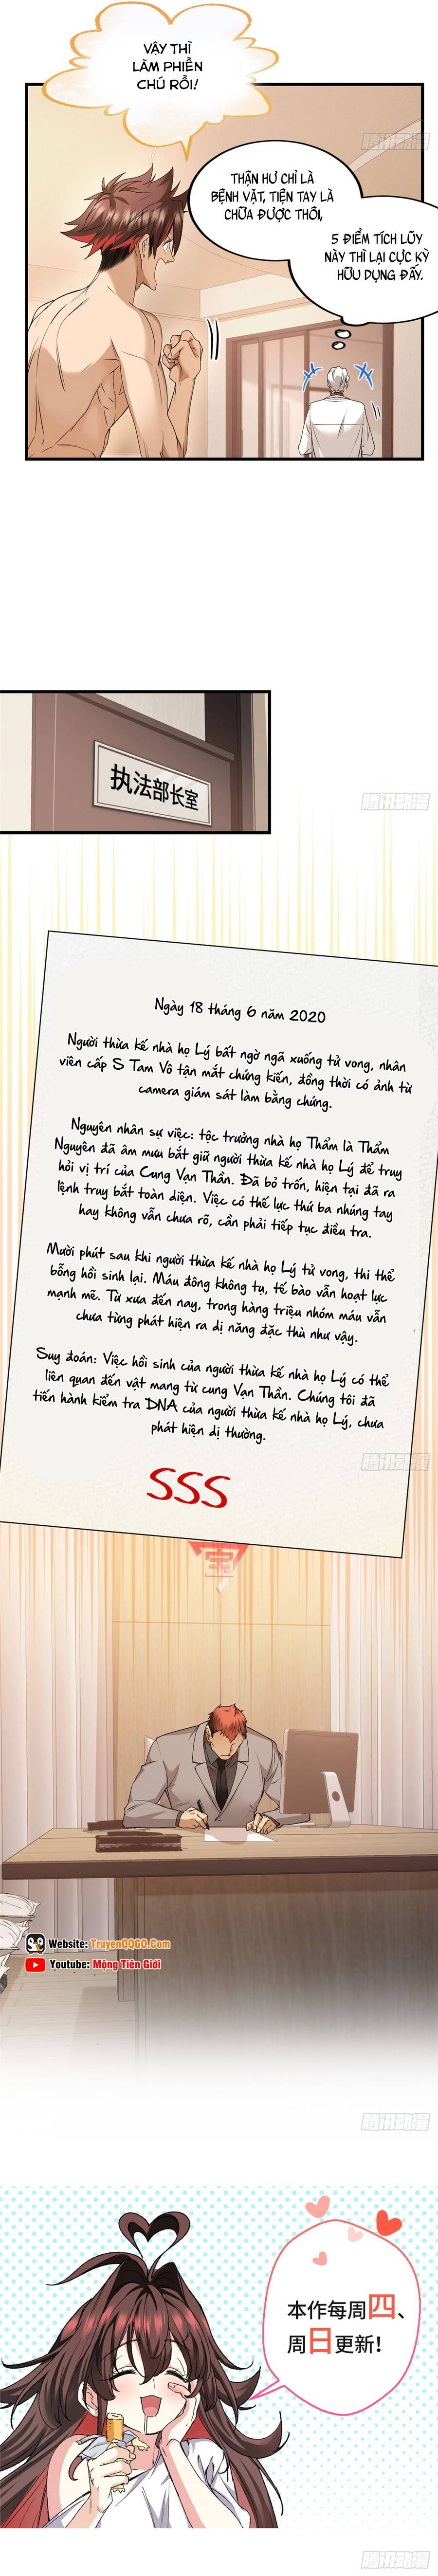 VẬY THÌ
LÀM PHIỀN
CHÚ RỒI!
腾讯动漫
THẬN HƯ CHỈ LÀ
BỆNH VẶT, TIỆN TAY LÀ
CHỮA ĐƯỢC THÔI,
5 ĐIỂM TÍCH LŨY
NÀY THÌ LẠI CỰC KỲ
HỮU DỤNG ĐẤY.
执法部长室
腾讯动漫
Ngày 18 tháng 6 năm 2020
Người thừa kế nhà họ Lý bất ngờ ngã xuống tử vong, nhân
viên cấp S Tam Vô tận mắt chứng kiến, đồng thời có ảnh từ
camera giám sát làm bằng chứng.
Nguyên nhân sự việc: tộc trưởng nhà họ Thẩm là Thẩm
Nguyên đã âm mưu bắt giữ người thừa kế nhà họ Lý để truy
hỏi vị trí của Cung Vạn Thần. Đã bỏ trốn, hiện tại đã ra
lệnh truy bắt toàn diện. Việc có thế lực thứ ba nhúng tay
hay không vẫn chưa rõ, cần phải tiếp tục điều tra.
Mười phút sau khi người thừa kế nhà họ Lý tử vong, thi thể
bỗng hồi sinh lại. Máu đông không tụ, tế bào vẫn hoạt lực
mạnh mẽ. Từ xưa đến nay, trong hàng triệu nhóm máu vẫn
chưa từng phát hiện ra dị năng đặc thù như vậy.
Suy đoán: Việc hồi sinh của người thừa kế nhà họ Lý có thể
liên quan đến vật mang từ cung Vạn Thần. Chúng tôi đã
tiến hành kiểm tra DNA của người thừa kế nhà họ Lý, chưa
phát hiện dị thường.
腾讯动漫
SSS
宝
Website: TruyenQQGO.Com
Youtube: Mộng Tiên Giới
腾讯动漫
本作每周四、
周日更新!
腾讯动漫